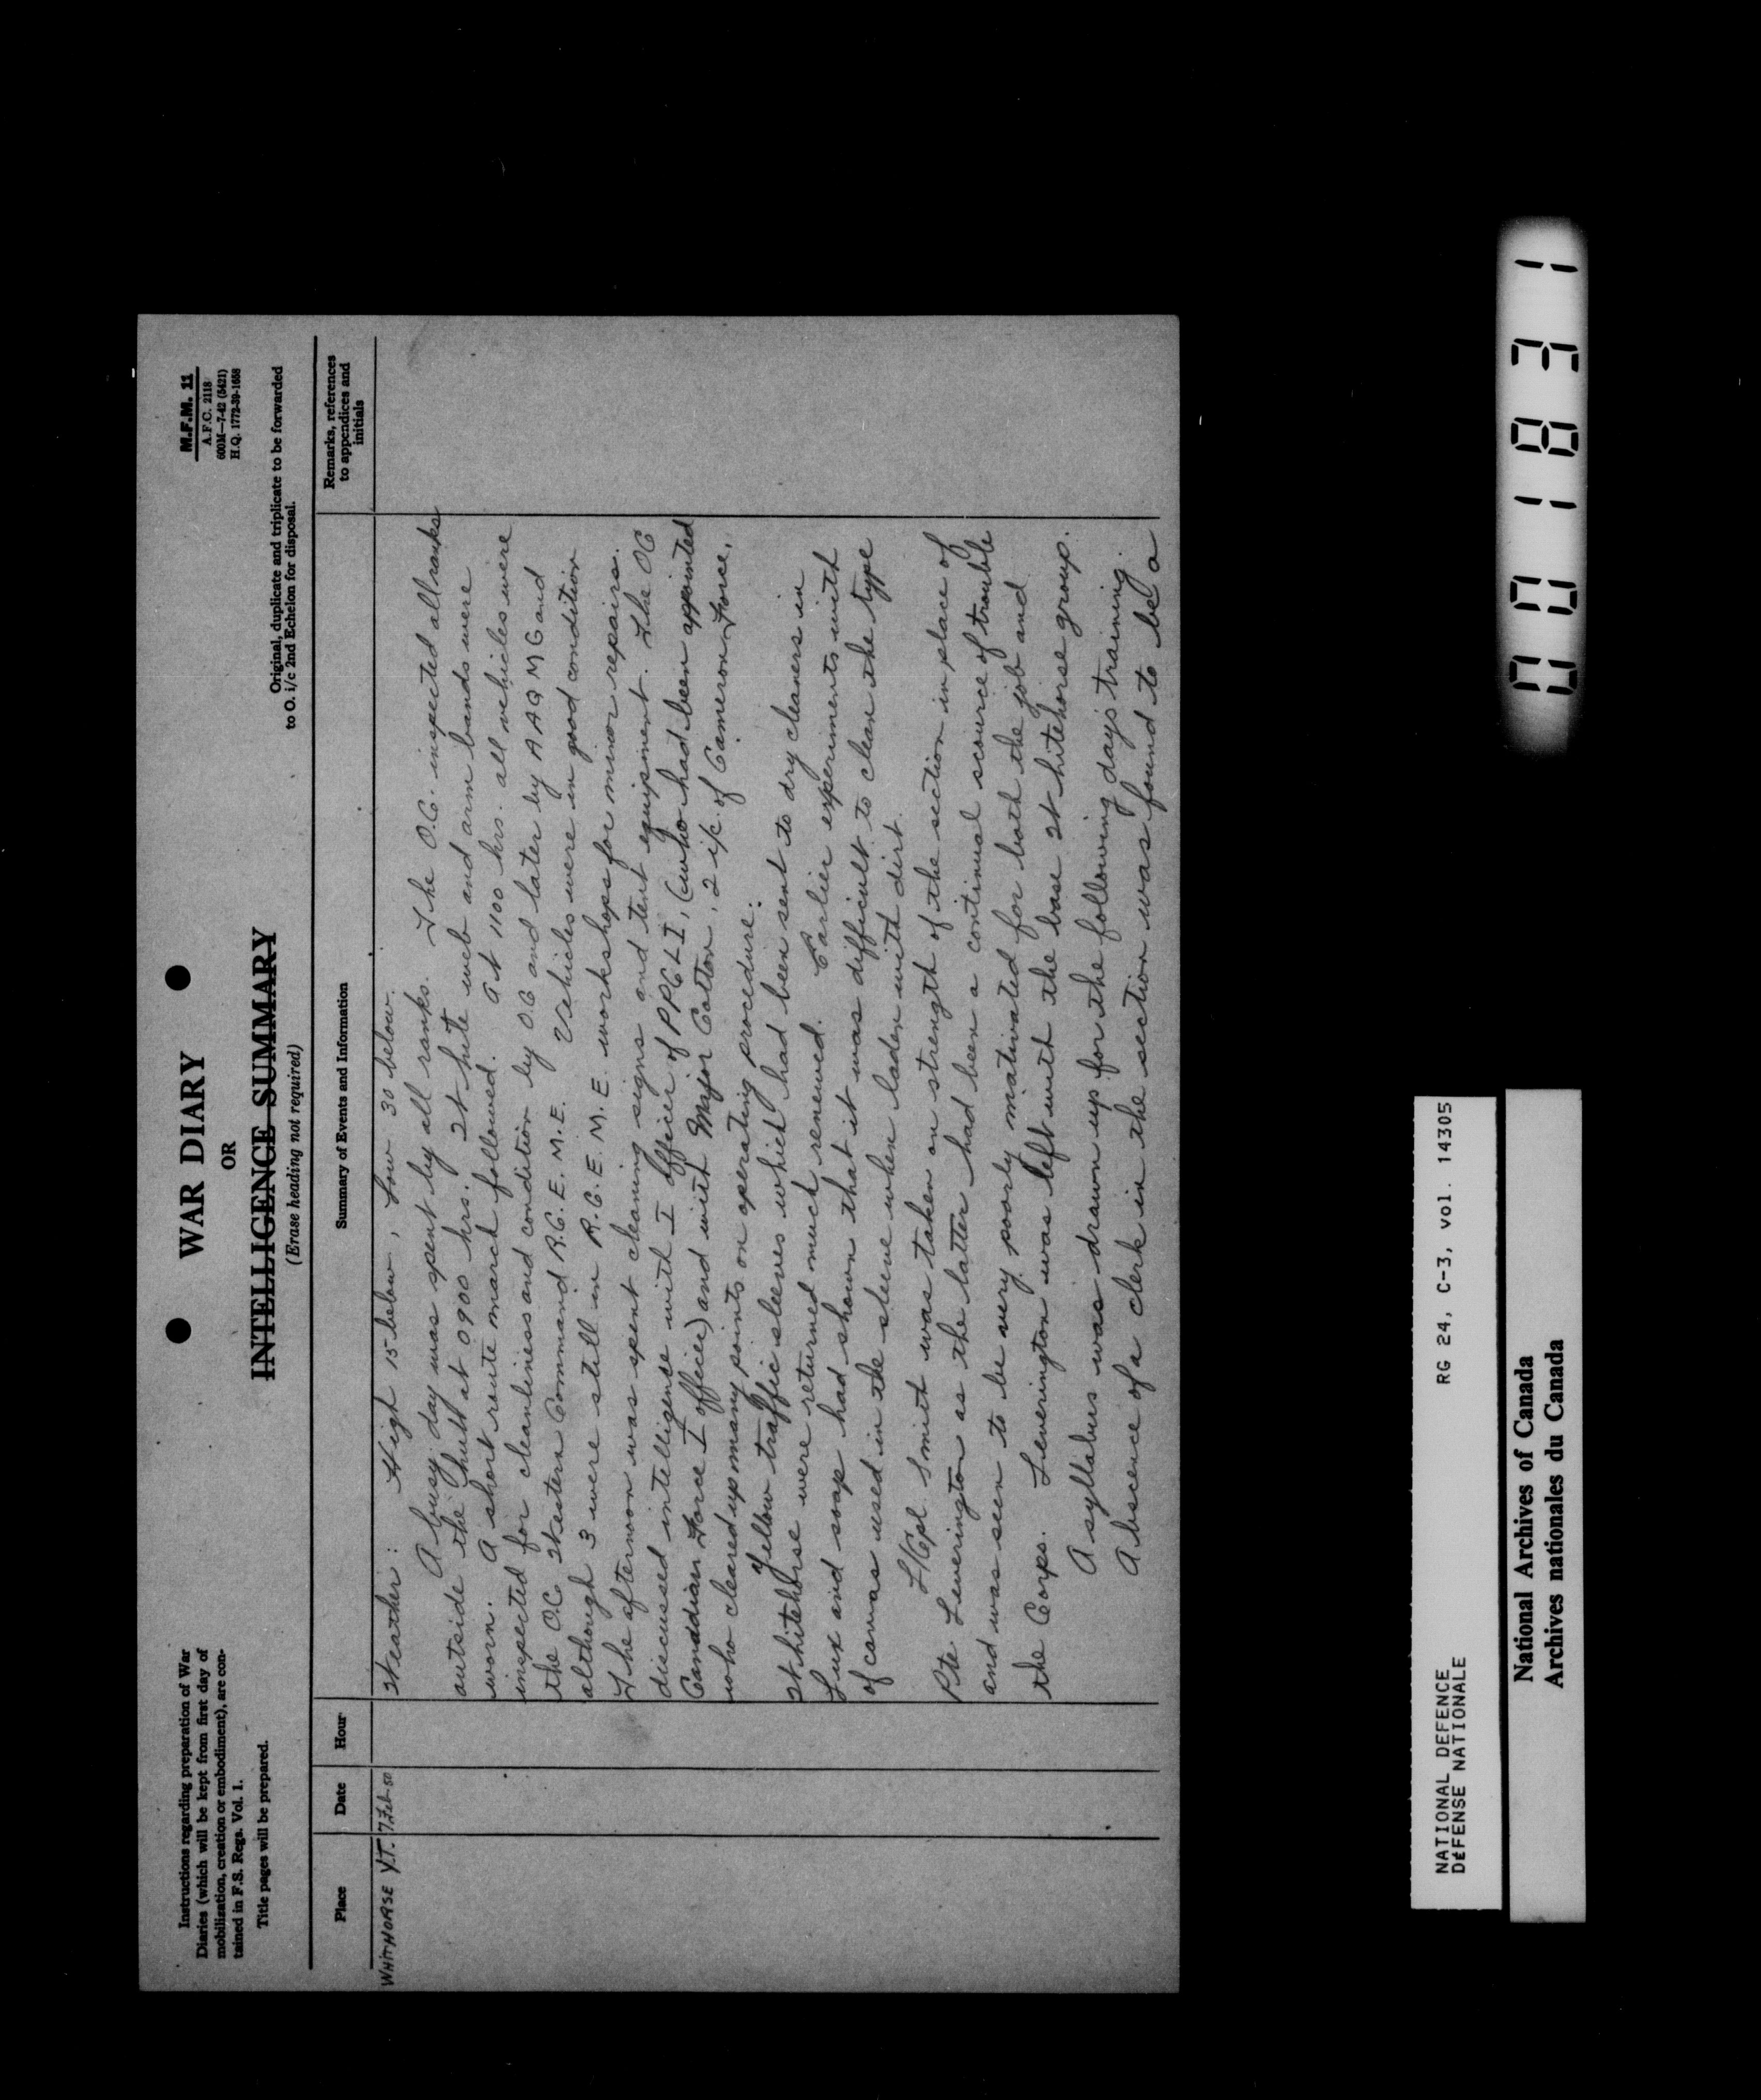 Instructions regarding preparation of War
Diaries (which will be kept from first day of
mobilization, creation or embodiment), are con-
tained in F.S. Regs. Vol. 1.
Title pages will be prepared.
WAR DIARY
OR
INTELLIGENCE SUMMARY
(Erase heading not required)
M.F.M. 11
A.F.C. 2118
600M—7-42 (5421)
H.Q. 1772-39-1658
Original, duplicate and triplicate to be forwarded
to O. i/c 2nd Echelon for disposal.
Place
Date
Hour
Summary of Events and Information
Remarks, references
to appendices and
initials
WHITHORSE Y.T. 7 Feb 50
Weather: High 15 below, Low 30 below.
A busy day was spent by all ranks. The O.C. inspected all ranks
outside the hut at 0900 hrs. White web and arm bands were
worn. A short route march followed. At 1100 hrs. all vehicles were
inspected for cleanliness and condition by O.C and later by AAQMG and
the O.C Western Command R.C.E.M.E. Vehicles were in good condition
although 3 were still in R.C.E.M.E. workshops for minor repairs.
The afternoon was spent cleaning signs and tent equipment. The OC
discussed intelligence with I officer of PPCLI, (who had been appointed
Canadian Force I officer) and with Major Cotton, 2 i/c of Cameron Force,
who cleared up many points on operating procedure.
Yellow traffic sleeves which had been sent to dry cleaners in
Whitehorse were returned much renewed. Earlier experiments with
Lux and soap had shown that it was difficult to clean the type
of canvas used in the sleeve when laden with dirt.
L/Cpl. Smith was taken on strength of the section in place of
Pte Leverington as the latter had been a continual scource of trouble
and was seen to be very poorly mativated for both the job and
the Corps. Leverington was left with the base Whitehorse group.
A syllabus was drawn up for the following days training.
Abscence of a clerk in the section was found to be a
NATIONAL DEFENCE
DÉFENSE NATIONALE
RG 24, C-3, vol. 14305
National Archives of Canada
Archives nationales du Canada
001831